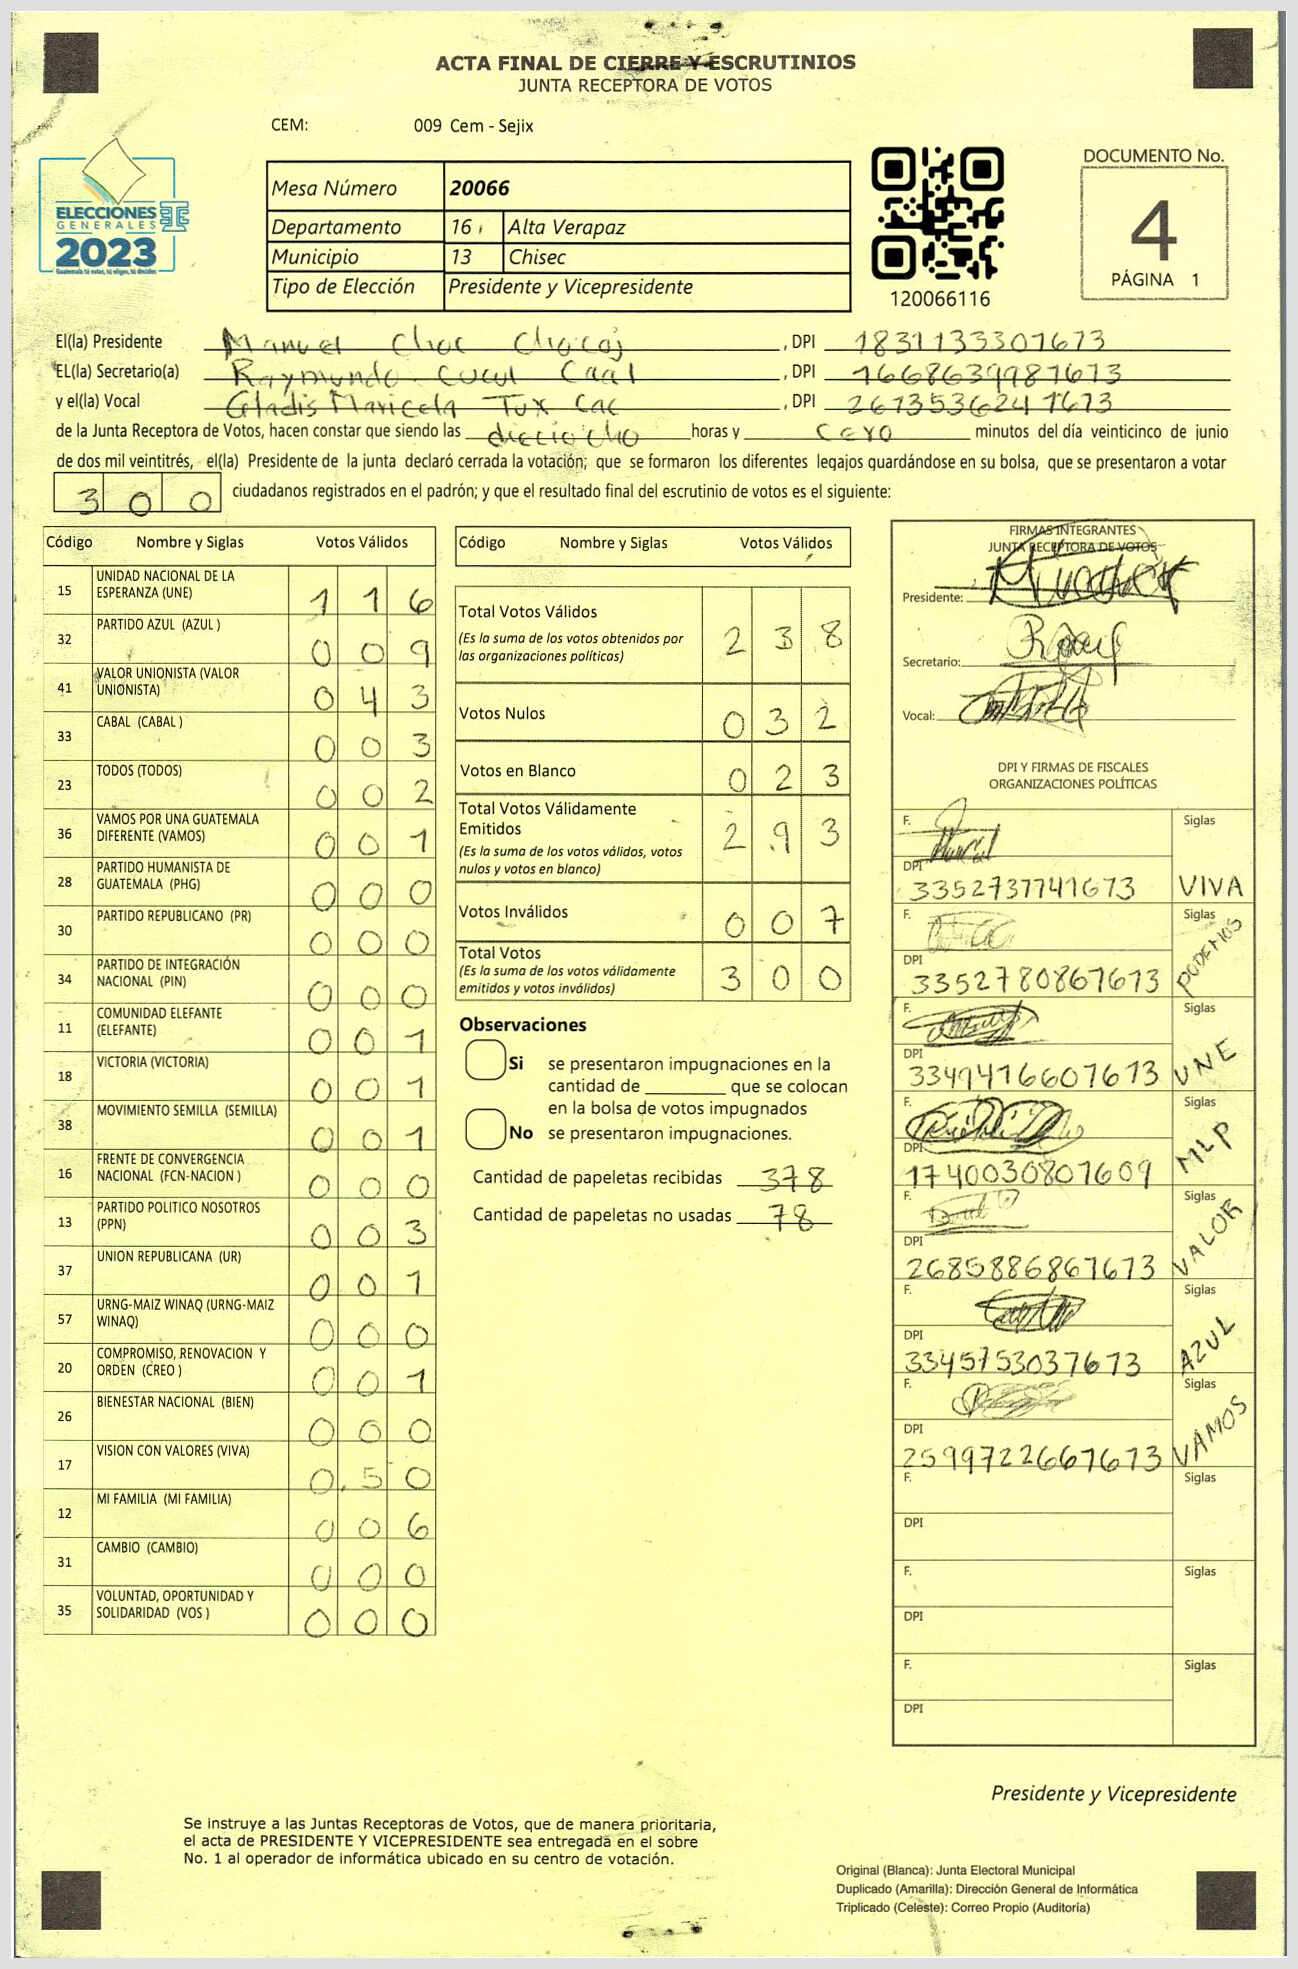 ACTA FINAL DE CIERRE Y ESCRUTINIOS
JUNTA RECEPTORA DE VOTOS
CEM: 009 Cem - Sejix
ELECCIONES
GENERALES
2023
Guatemala tú votas, tú eliges, tú decides
Mesa Número 20066
Departamento 16 Alta Verapaz
Municipio 13 Chisec
Tipo de Elección Presidente y Vicepresidente
120066116
DOCUMENTO No.
4
PÁGINA 1
El(la) Presidente Manuel Choc Chocoj, DPI 1831133301673
EL(la) Secretario(a) Raymundo Cucul Caal, DPI 1668639981673
y el(la) Vocal Gladis Maricela Tux Cac, DPI 2673536241673
de la Junta Receptora de Votos, hacen constar que siendo las dieciocho horas y cero minutos del día veinticinco de junio
de dos mil veintitrés, el(la) Presidente de la junta declaró cerrada la votación; que se formaron los diferentes legajos guardándose en su bolsa, que se presentaron a votar
300 ciudadanos registrados en el padrón; y que el resultado final del escrutinio de votos es el siguiente:
Código Nombre y Siglas Votos Válidos
15 UNIDAD NACIONAL DE LA ESPERANZA (UNE) 116
32 PARTIDO AZUL (AZUL ) 009
41 VALOR UNIONISTA (VALOR UNIONISTA) 043
33 CABAL (CABAL ) 003
23 TODOS (TODOS) 002
36 VAMOS POR UNA GUATEMALA DIFERENTE (VAMOS) 001
28 PARTIDO HUMANISTA DE GUATEMALA (PHG) 000
30 PARTIDO REPUBLICANO (PR) 000
34 PARTIDO DE INTEGRACIÓN NACIONAL (PIN) 000
11 COMUNIDAD ELEFANTE (ELEFANTE) 001
18 VICTORIA (VICTORIA) 001
38 MOVIMIENTO SEMILLA (SEMILLA) 001
16 FRENTE DE CONVERGENCIA NACIONAL (FCN-NACION ) 000
13 PARTIDO POLITICO NOSOTROS (PPN) 003
37 UNION REPUBLICANA (UR) 001
57 URNG-MAIZ WINAQ (URNG-MAIZ WINAQ) 000
20 COMPROMISO, RENOVACION Y ORDEN (CREO ) 001
26 BIENESTAR NACIONAL (BIEN) 000
17 VISION CON VALORES (VIVA) 050
12 MI FAMILIA (MI FAMILIA) 006
31 CAMBIO (CAMBIO) 000
35 VOLUNTAD, OPORTUNIDAD Y SOLIDARIDAD (VOS ) 000
Código Nombre y Siglas Votos Válidos
Total Votos Válidos 238
(Es la suma de los votos obtenidos por
las organizaciones políticas)
Votos Nulos 032
Votos en Blanco 023
Total Votos Válidamente
Emitidos 293
(Es la suma de los votos válidos, votos
nulos y votos en blanco)
Votos Inválidos 007
Total Votos 300
(Es la suma de los votos válidamente
emitidos y votos inválidos)
Observaciones
Si se presentaron impugnaciones en la
cantidad de ________ que se colocan
en la bolsa de votos impugnados
No se presentaron impugnaciones.
Cantidad de papeletas recibidas 378
Cantidad de papeletas no usadas 78
FIRMAS INTEGRANTES
JUNTA RECEPTORA DE VOTOS
Presidente:
Secretario:
Vocal:
DPI Y FIRMAS DE FISCALES
ORGANIZACIONES POLÍTICAS
F. Siglas
DPI 3352737741673 VIVA
F. Siglas
DPI 3352780861673 PODEMOS
F. Siglas
DPI 3349416601673 UNE
F. Siglas
DPI 1740030801609 MLP
F. Siglas
DPI 2685886861673 VALOR
F. Siglas
DPI 3345753037673 AZUL
F. Siglas
DPI 2599722661673 VAMOS
F. Siglas
DPI
F. Siglas
DPI
F. Siglas
DPI
Presidente y Vicepresidente
Se instruye a las Juntas Receptoras de Votos, que de manera prioritaria,
el acta de PRESIDENTE Y VICEPRESIDENTE sea entregada en el sobre
No. 1 al operador de informática ubicado en su centro de votación.
Original (Blanca): Junta Electoral Municipal
Duplicado (Amarilla): Dirección General de Informática
Triplicado (Celeste): Correo Propio (Auditoría)